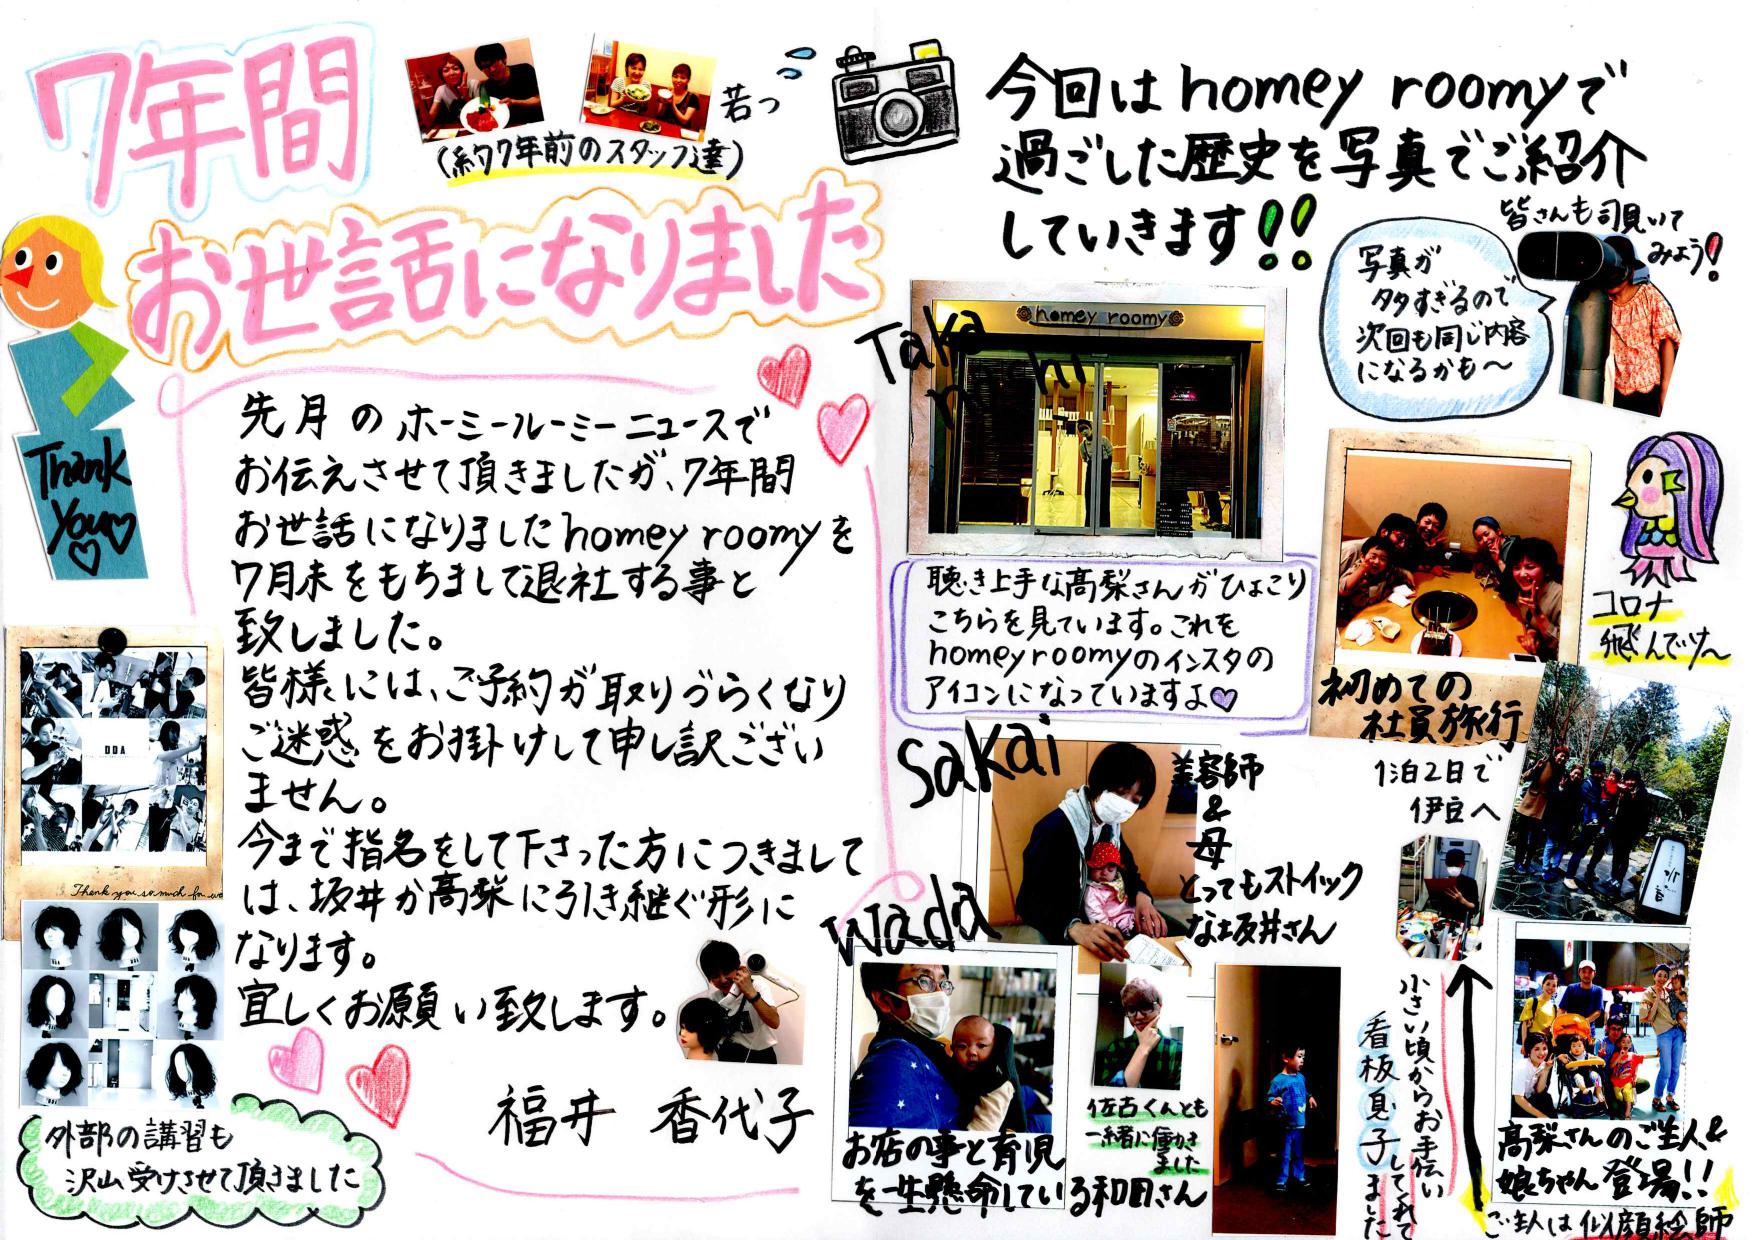 7年間
お世話になりました
(約7年前のスタッフ達)
若っ
Thank
You♡
♡
先月のホーミールーミーニュースで
お伝えさせて頂きましたが、7年間
お世話になりましたhomey roomyを
7月末をもちまして退社する事と
致しました。
皆様には、ご予約が取りづらくなり
ご迷惑をお掛けして申し訳ござい
ません。
今まで指名をして下さった方につきまして
は、坂井か高梨に引き継ぐ形に
なります。
宜しくお願い致します。
福井 香代子
DDA
Thank you so much for
外部の講習も
沢山受けさせて頂きました
今回はhomey roomyで
過ごした歴史を写真でご紹介
していきます!!
皆さんも覗いて
みよう!
写真が
多すぎるので
次回も同じ内容
になるかも〜
homey roomy
聴き上手な高梨さんがひょこり
こちらを見ています。これを
homey roomyのインスタの
アイコンになっていますよ♡
コロナ
飛んでけ〜
初めての
社員旅行
1泊2日で
伊豆へ
Sakai
美容師
&
母
とってもストイック
な坂井さん
Wada
お店の事と育児
を一生懸命している和田さん
佐古くんとも
一緒に働きました
小さい頃からお手伝い
してくれて
看板息子
ました
高梨さんのご主人&
娘ちゃん登場!!
ご主人は似顔絵師